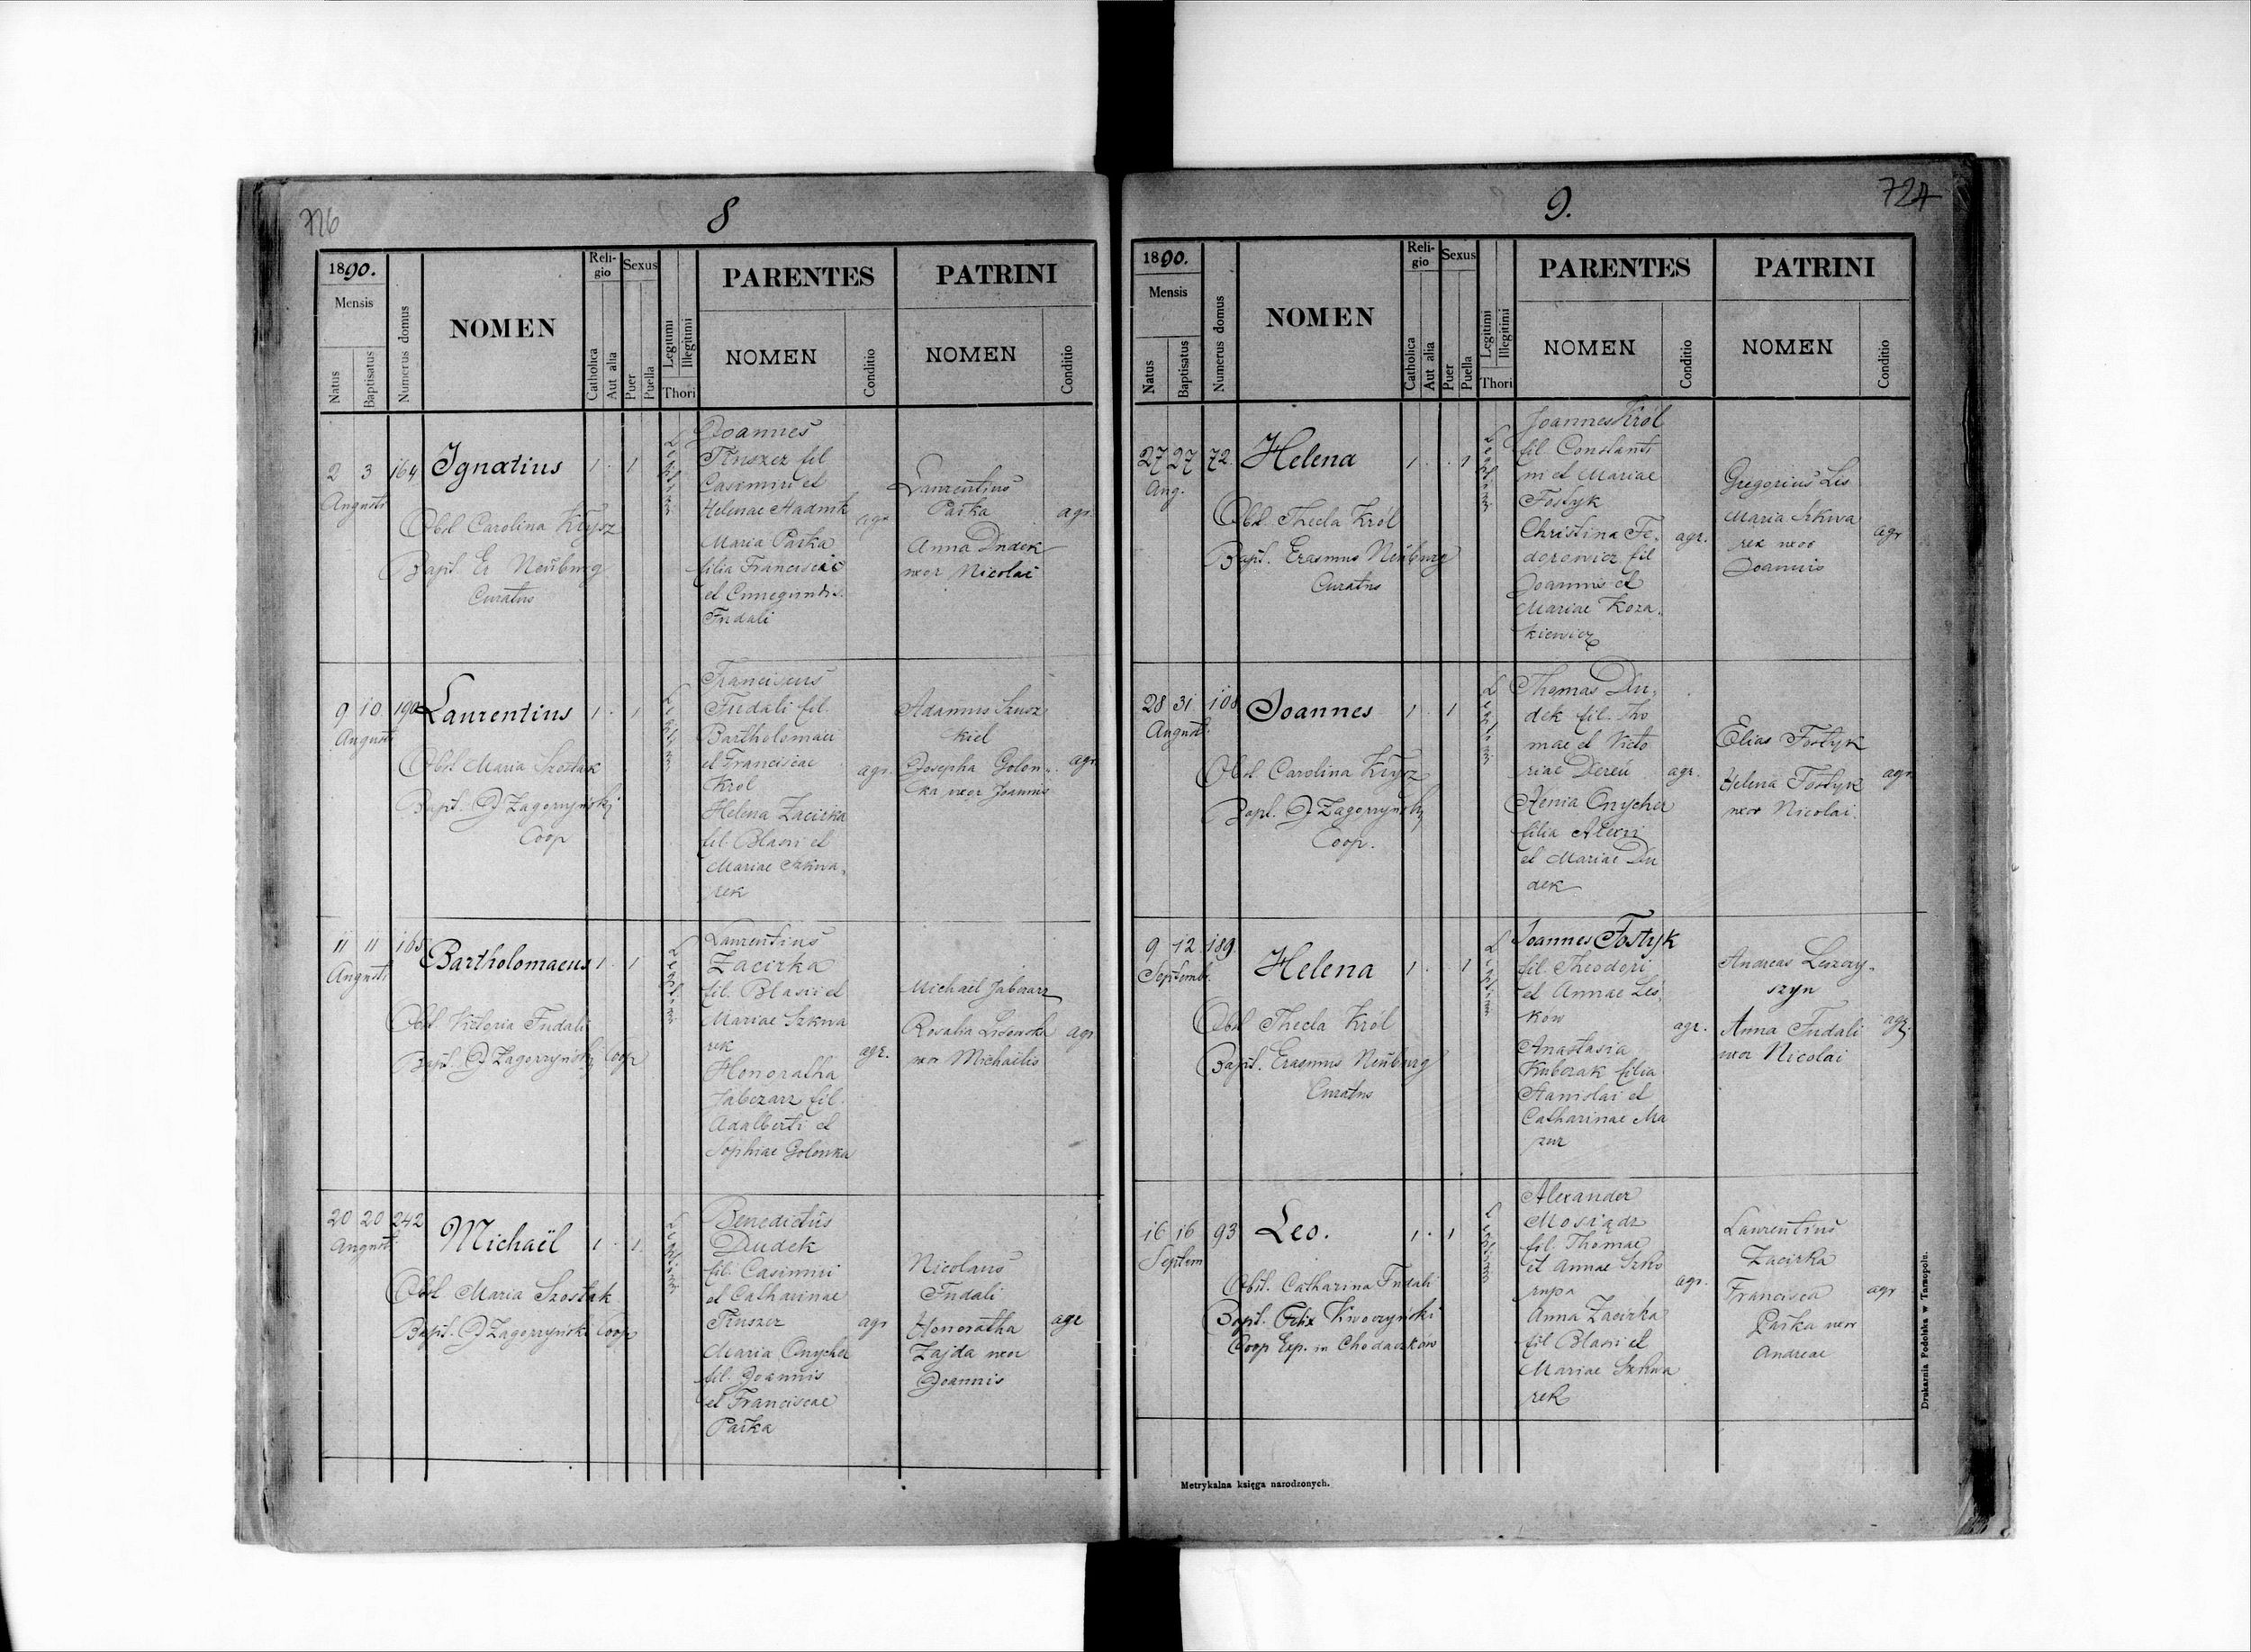 8
1890.
Mensis
Natus
Baptisatus
Numerus domus
NOMEN
Reli-
gio
Catholica
Aut alia
Sexus
Puer
Puella
Legitimi
Illegitimi
Thori
PARENTES
NOMEN
Conditio
PATRINI
NOMEN
Conditio
2 3 164 Ignatius 1 . 1
Augusti
Obst Carolina Krysz
Bapt. Er Neuburg
Curatus
Joannes
Truszez fil
Casimiri et
Helenae
Maria Paska
filia Francisci
et Cunegundis
Fudali
agr
Laurentius
Paska
Anna Dudek
uxor Nicolai
agr.
9 10 190 Laurentius 1 . 1
Augusti
Obst Maria Szostak
Bapt. J Zagorzyński
Coop
Franciscus
Fudali fil.
Bartholomaei
et Franciscae
Król
Helena Zacirka
fil. Blasii et
Mariae Szkwa-
rek
agr.
Adamus Szusz
kiel
Josepha Golon-
ka uxor Joannis
agr.
11 11 165 Bartholomaeus 1 . 1
Augusti
Obst. Victoria Fudali
Bapt. J Zagorzyński Coop
Laurentius
Zacirka
fil. Blasii et
Mariae Szkwa
rek
Honoratha
Jabczarz fil.
Adalberti et
Sophiae Golonka
agr.
Michael Jabczarz
Rosalia
uxor Michaelis
agr.
20 20 242 Michaël 1 . 1
August.
Obst Maria Szostak
Bapt. J Zagorzyński Coop
Benedictus
Dudek
fil. Casimiri
et Catharinae
Truszez
Maria Onycher
fil. Joannis
et Franciscae
Paska
agr
Nicolaus
Fudali
Honoratha
Zajda uxor
Joannis
agr
9.
724
1890.
Mensis
Natus
Baptisatus
Numerus domus
NOMEN
Reli-
gio
Catholica
Aut alia
Sexus
Puer
Puella
Legitimi
Illegitimi
Thori
PARENTES
NOMEN
Conditio
PATRINI
NOMEN
Conditio
27 27 72. Helena 1 . . 1
Aug.
Obst. Thecla Król
Bapt. Erasmus Neuburg
Curatus
Joannes Król
fil Constanti
ni et Mariae
Fostyk
Christina Fe-
dorowicz fil
Joannis et
Mariae Koza-
kiewicz
agr.
Gregorius Les
Maria Szkwa
rek uxor
Joannis
agr
28 31 108 Joannes 1 . 1
August.
Obst. Carolina Krysz
Bapt. J Zagorzyński
Coop.
Thomas Du-
dek fil. Tho
mae et Victo
riae Dereń
Xenia Onycher
filia Alexii
et Mariae Du
dek
agr.
Elias Fostyk
Helena Fostyk
uxor Nicolai.
agr.
9 12 189. Helena 1 . . 1
Septembr.
Obst Thecla Król
Bapt. Erasmus Neuburg
Curatus
Joannes Fostyk
fil. Theodori
et Annae Les-
kow
Anastasia
Kubczak filia
Stanislai et
Catharinae Ma
zur
agr.
Andreas Leszczy-
szyn
Anna Fudali
uxor Nicolai
agr.
16 16 93 Leo. 1 . 1
Septem
Obst. Catharina Fudali
Bapt. Felix Kwoczyński
Coop Exp. in Chodaczków
Alexander
Mosiądz
fil. Thomae
et Annae Szko
rupa
Anna Zacirka
fil Blasii et
Mariae Szkwa
rek
agr.
Laurentius
Zacirka
Francisca
Paska uxor
Andreae
agr
Metrykalna księga narodzonych.
Drukarnia Podolska w Tarnopolu.